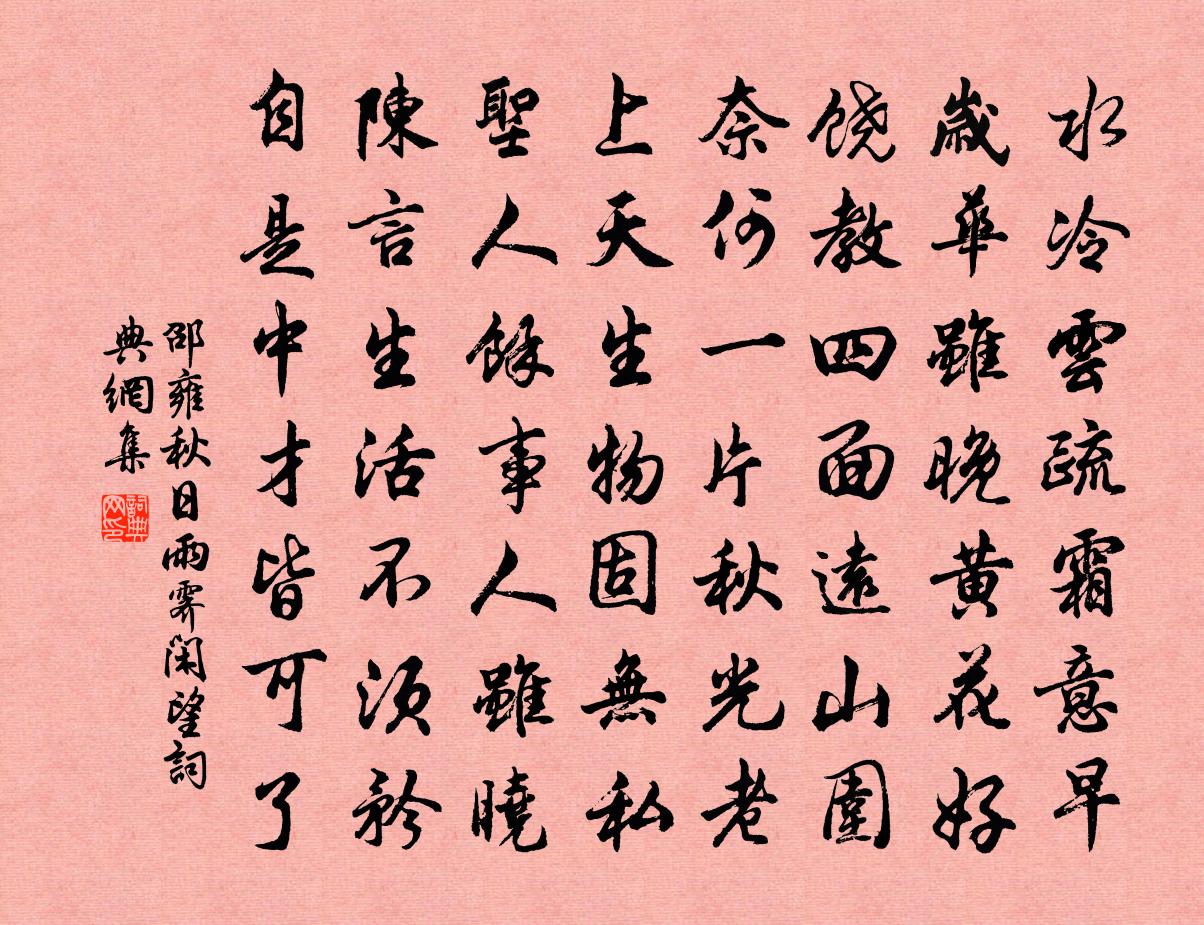 水冷雲疏霜意早
歲華雖晚黃花好
饒教四面遠山圍
奈何一片秋光老
上天生物固無私
聖人餘事人雖曉
陳言生活不須矜
自是中才皆可了
邵雍秋日雨霽閑望詞
典網集
詞典
网印